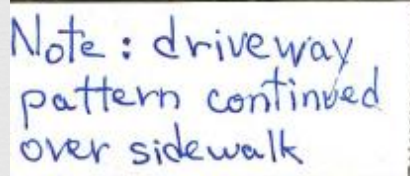 Note: driveway
pattern continued
over sidewalk